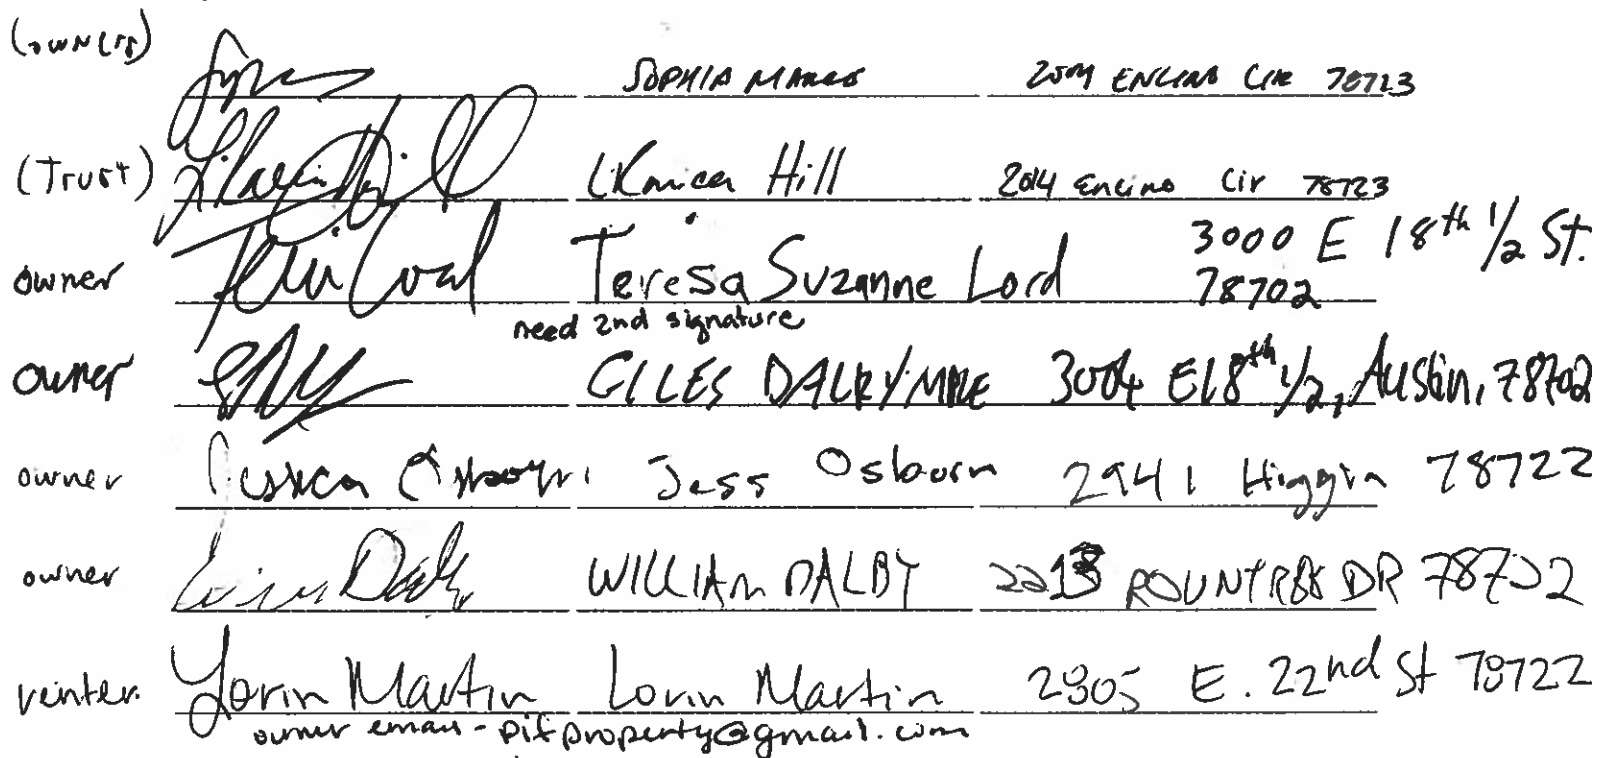 (owners) SOPHIA 2004 ENCINO CIR 78723
(Trust) Hill 2014 Encino Cir 78723
owner Teresa Suzanne Lord 3000 E 18th 1/2 St. 78702
need 2nd signature
owner GILES DALRYMPLE 3004 E18th 1/2, Austin, 78702
owner Jessica Osborn Jess Osborn 2941 Higgin 78722
owner William Dalby WILLIAM DALBY 2213 ROUNTREE DR 78722
renter. Lorin Martin Lorin Martin 2905 E. 22nd St 78722
owner email - pifproperty@gmail.com